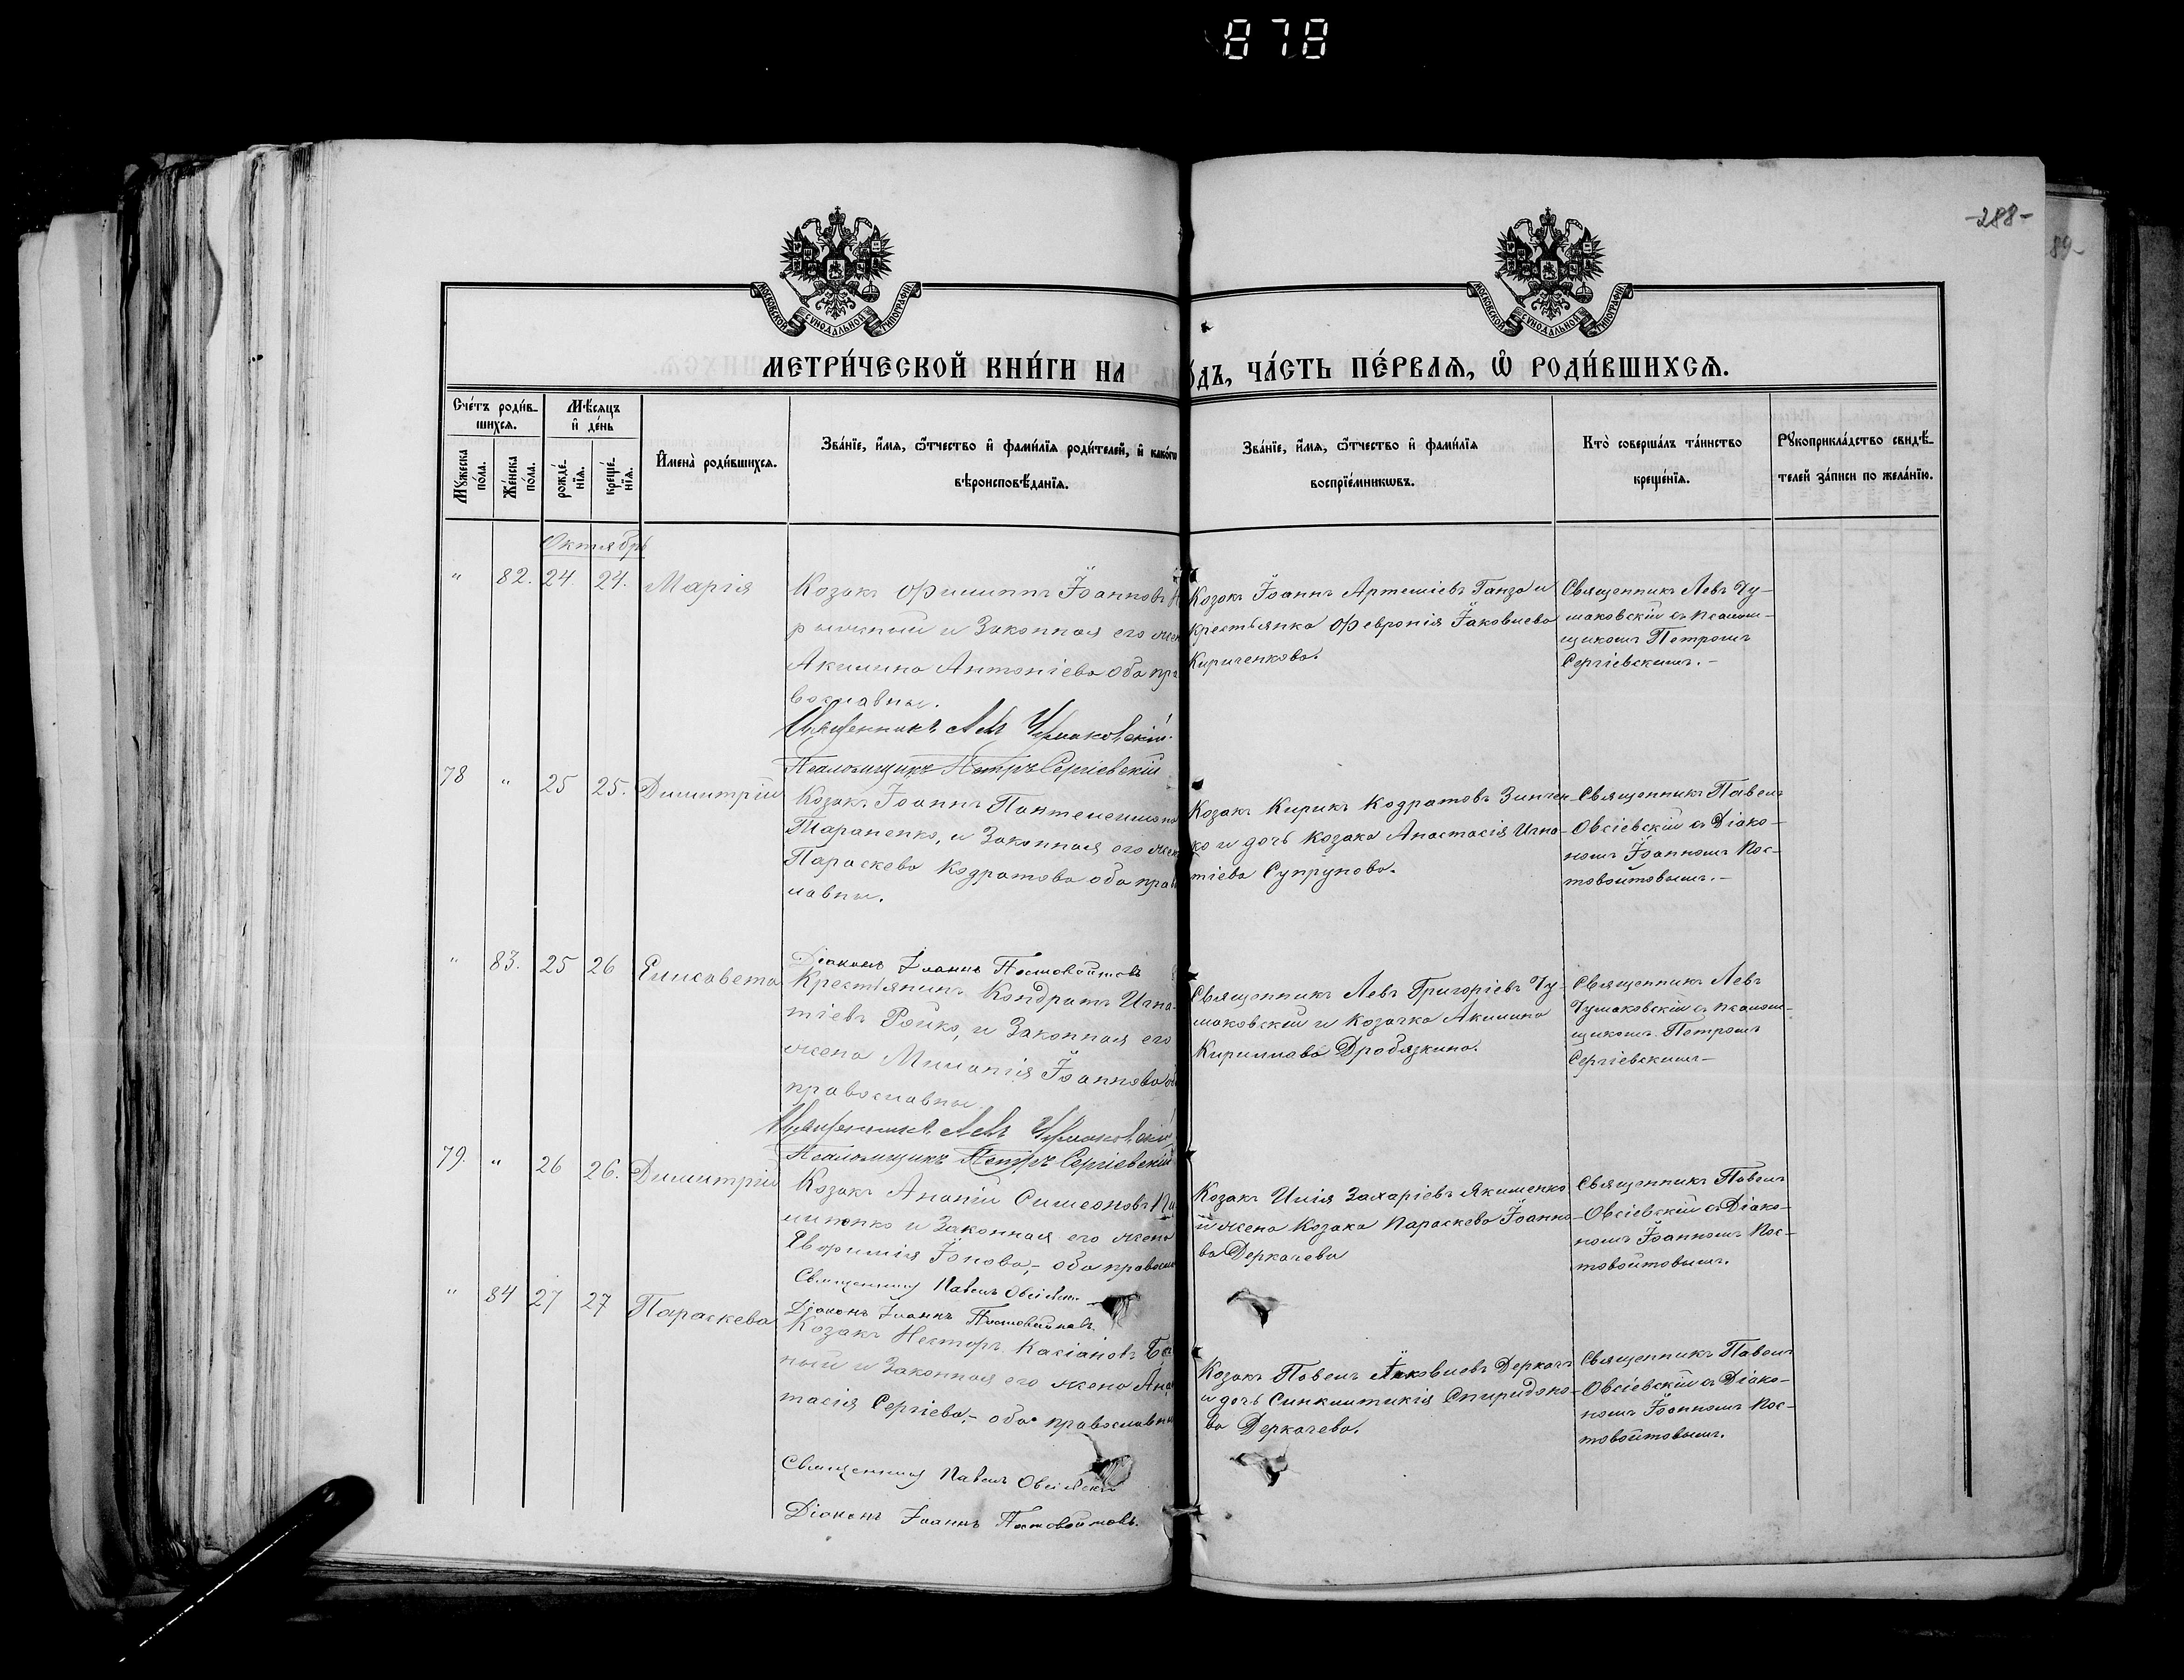 878
-288-
89-
МОСКОВСКОЙ СѴНОДАЛЬНОЙ ТИПОГРАФІИ
МОСКОВСКОЙ СѴНОДАЛЬНОЙ ТИПОГРАФІИ
МЕТРИ́ЧЕСКОЙ КНИ́ГИ НА
О́ДЪ, ЧА́СТЬ ПЕ́РВАѦ, Ѡ҆ РОДИ́ВШИХСѦ.
Сче́тъ роди́в-
шихсѧ.
Мꙋ́жеска по́ла.
Же́нска по́ла.
Мѣ́сѧцъ
и҆ де́нь
рожде́-
нїѧ.
креще́-
нїѧ.
И҆мена̀ роди́вшихсѧ.
Зва́нїе, и҆́мѧ, ѻ҆́тчество и҆ фами́лїѧ роди́телей, и҆ како́гѡ
вѣроисповѣ́данїѧ.
Зва́нїе, и҆́мѧ, ѻ҆́тчество и҆ фами́лїѧ
воспрїе́мникѡвъ.
Кто̀ соверша́лъ та́инство
креще́нїѧ.
Рꙋкоприкла́дство свидѣ́-
телей за́писи по жела́нїю.
Октябрь
" 82. 24. 24. Марія
Козакъ Филиппъ Іоанновъ
рыжный и Законная его жен
Акилина Антоніева оба пра
вославны.
Священникъ Левъ Чумаковскій.
Псаломщикъ Петръ Сергіевскій
Козакъ Іоаннъ Артеміевъ Ганза и
крестьянка Февронія Іаковлева
Кириченкова.
Священникъ Левъ Чу-
маковскій съ псалом-
щикомъ Петромъ
Сергіевскимъ.-
78 " 25 25. Димитрій
Козакъ Іоаннъ Пантелеимоно
Тараненко, и Законная его жен
Параскева Кодратова оба прав
лавны.
Діаконъ Іоаннъ Постовойтовъ
Козакъ Кирикъ Кодратовъ Зинчен-
ко и дочь козака Анастасія Игна-
тіева Супрунова.
Священникъ Павелъ
Овсіевскій съ Діако-
номъ Іоанномъ Пос-
товойтовымъ.-
" 83. 25 26 Елисавета
Крестьянинъ Кондратъ Игна-
тіевъ Ройко, и Законная его
жена Миланія Іоаннова об
православны.
Священникъ Левъ Чумаковскій
Псаломщикъ Петръ Сергіевскій
Священникъ Левъ Григоріевъ Чу-
маковскій и козачка Акилина
Кириллова Дробязкина.
Священникъ Левъ
Чумаковскій съ псалом-
щикомъ Петромъ
Сергіевскимъ-
79. " 26 26. Димитрій
Козакъ Ананій Симеоновъ Пи
липенко и Законная его жена
Евфимія Іонова,- оба правосла
Священникъ Павелъ Овсіевскій
Діаконъ Іоаннъ Постовойтовъ
Козакъ Илія Захаріевъ Якименко
и жена козака Параскева Іоанно-
ва Деркачева
Священникъ Павелъ
Овсіевскій съ Діако-
номъ Іоанномъ Пос-
товойтовымъ.
" 84 27 27 Параскева
Козакъ Несторъ Касіановъ
ный и Законная его жена Анас
тасія Сергіева,- оба православны
Священникъ Павелъ Овсіевскій
Діаконъ Іоаннъ Постовойтовъ.
Козакъ Павелъ Іаковлевъ Деркачъ
и дочь Синклитикія Спиридоно-
ва Деркачева.
Священникъ Павелъ
Овсіевскій съ Діако-
номъ Іоанномъ Пос-
товойтовымъ.